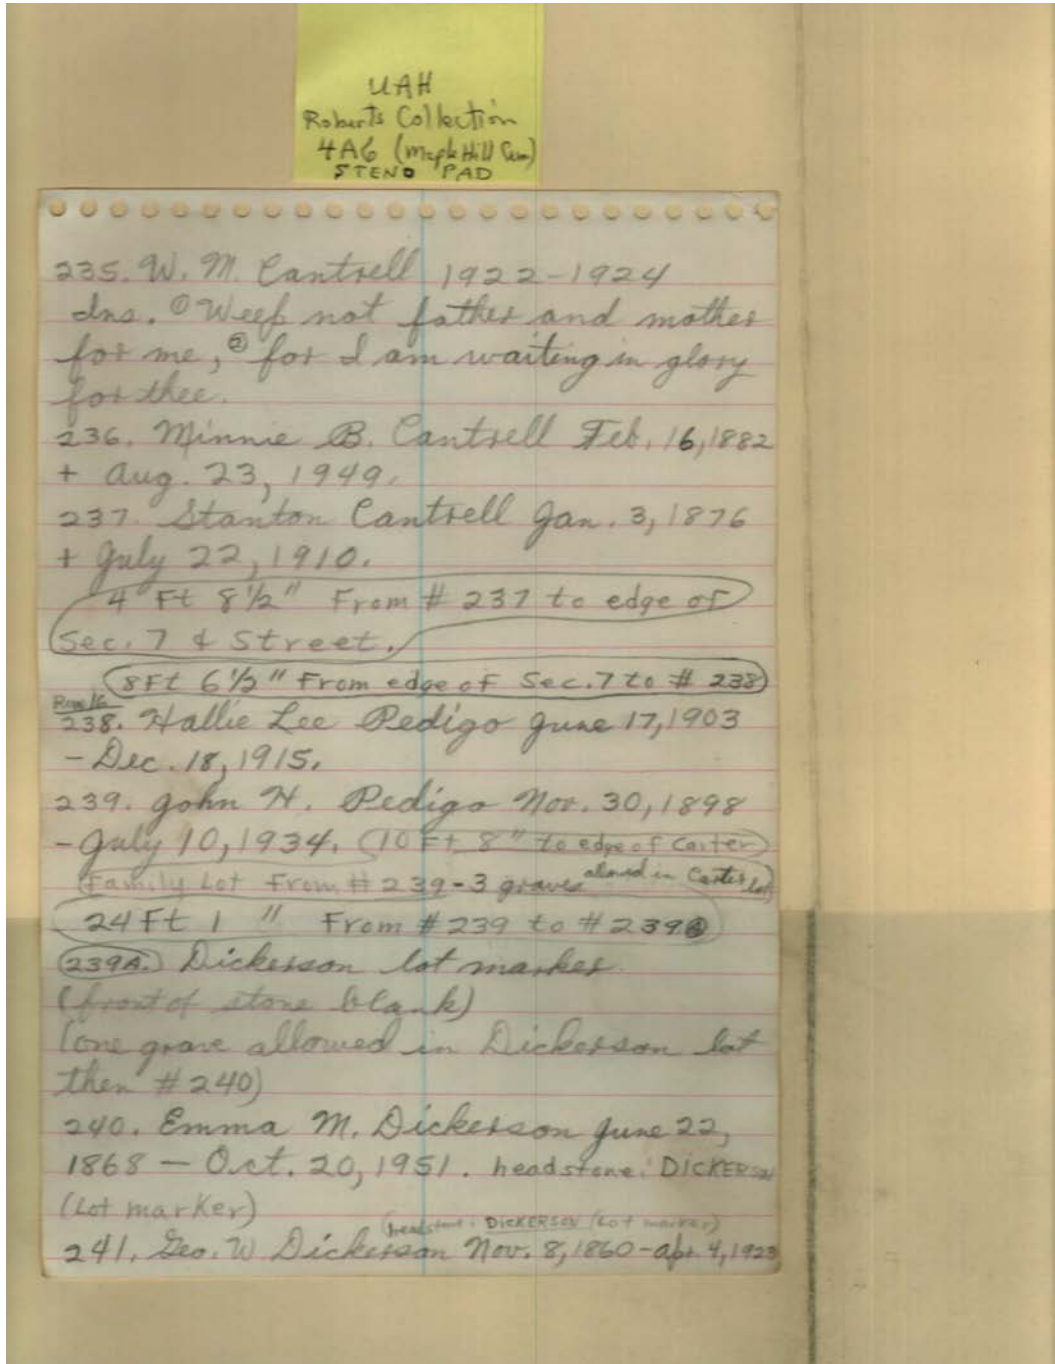 UAH
Roberts Collection
4A6 (Maple Hill Cem)
STENO PAD
235. W. M. Cantrell 1922-1924
Ins. ① Weep not father and mother
for me, ② for I am waiting in glory
for thee.
236. Minnie B. Cantrell Feb. 16, 1882
+ Aug. 23, 1949.
237. Stanton Cantrell Jan. 3, 1876
+ July 22, 1910.
4 Ft 8 1/2" From # 237 to edge of
Sec. 7 & Street.
8 Ft 6 1/2" From edge of Sec. 7 to # 238
Row
238. Hallie Lee Pedigo June 17, 1903
- Dec. 18, 1915.
239. John H. Pedigo Nov. 30, 1898
- July 10, 1934. (10 Ft 8" to edge of Carter
Family Lot From # 239 - 3 graves allowed in Carter lot)
24 Ft 1 " From # 239 to # 239A
239A. Dickerson lot marker
(front of stone blank)
(one grave allowed in Dickerson lot
then # 240)
240. Emma M. Dickerson June 22,
1868 — Oct. 20, 1951. headstone: DICKERSON
(Lot marker)
(headstone: DICKERSON (Lot marker)
241. Geo. W Dickerson Nov. 8, 1860 - Apr. 4, 1923